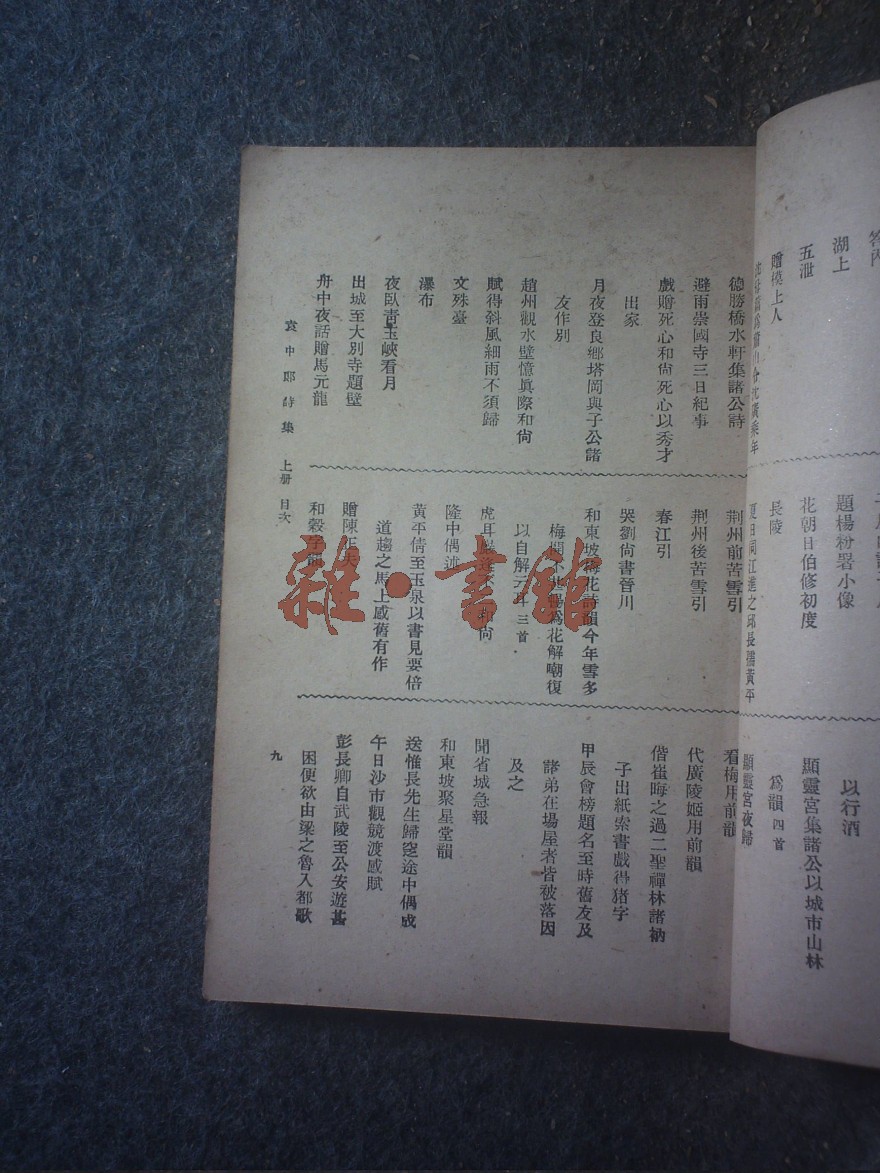 湖上
五泄
贈摸上人
題楊粉署小像
花朝日伯修初度
長陵
以行酒
顯靈宮集諸公以城市山林
爲韻 四首
顯靈宮夜歸
德勝橋水軒集諸公詩
避雨崇國寺三日紀事
戲贈死心和尙死心以秀才
出家
月夜登良鄉塔岡與子公諸
友作別
趙州觀水壁憶眞際和尙
賦得斜風細雨不須歸
文殊臺
瀑布
夜臥靑玉峽看月
出城至大別寺題壁
舟中夜話贈馬元龍
荆州前苦雪引
荆州後苦雪引
春江引
哭劉尙書晉川
和東坡梅花詩韻今年雪多
爲花解嘲復
以自解 三首
隆中偶述
黃平倩至玉泉以書見要倍
道趨之馬上感舊有作
看梅用前韻
代廣陵姬用前韻
偕崔晦之過二聖禪林諸衲
子出紙索書戲得猪字
甲辰會榜題名至時舊友及
諸弟在場屋者皆被落因
及之
聞省城急報
和東坡聚星堂韻
送惟長先生歸窆途中偶成
午日沙市觀競渡感賦
彭長卿自武陵至公安遊甚
困便欲由梁之魯入都歌
袁中郎詩集 上册 目次
九
雜·書館